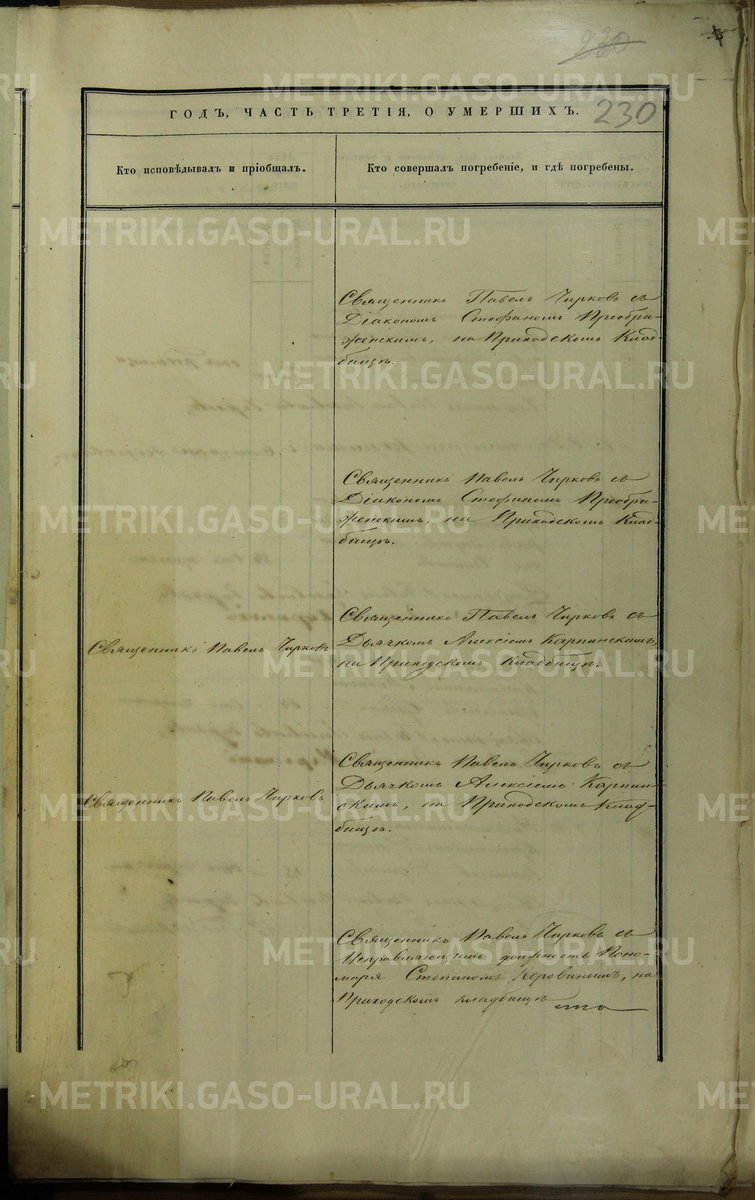 230
230
ГОДЪ, ЧАСТЬ ТРЕТІЯ, О УМЕРШИХЪ.
Кто исповѣдывалъ и пріобщалъ.
Кто совершалъ погребеніе, и гдѣ погребены.
Священникъ Павелъ Чирковъ съ
Діакономъ Стефаномъ Преобра-
женскимъ, на Приходскомъ Клад-
бищѣ.
Священникъ Павелъ Чирковъ съ
Діакономъ Стефаномъ Преобра-
женскимъ, на Приходскомъ Клад-
бищѣ.
Священникъ Павелъ Чирковъ
Священникъ Павелъ Чирковъ съ
Дьячкомъ Алексіемъ Карпинскимъ,
на Приходскомъ Кладбищѣ.
Священникъ Павелъ Чирковъ
Священникъ Павелъ Чирковъ съ
Дьячкомъ Алексіемъ Карпин-
скимъ, на Приходскомъ Клад-
бищѣ.
Священникъ Павелъ Чирковъ съ
Исправляющимъ должность Поно-
маря Степаномъ Коровинымъ, на
Приходскомъ кладбищѣ
METRIKI.GASO-URAL.RU